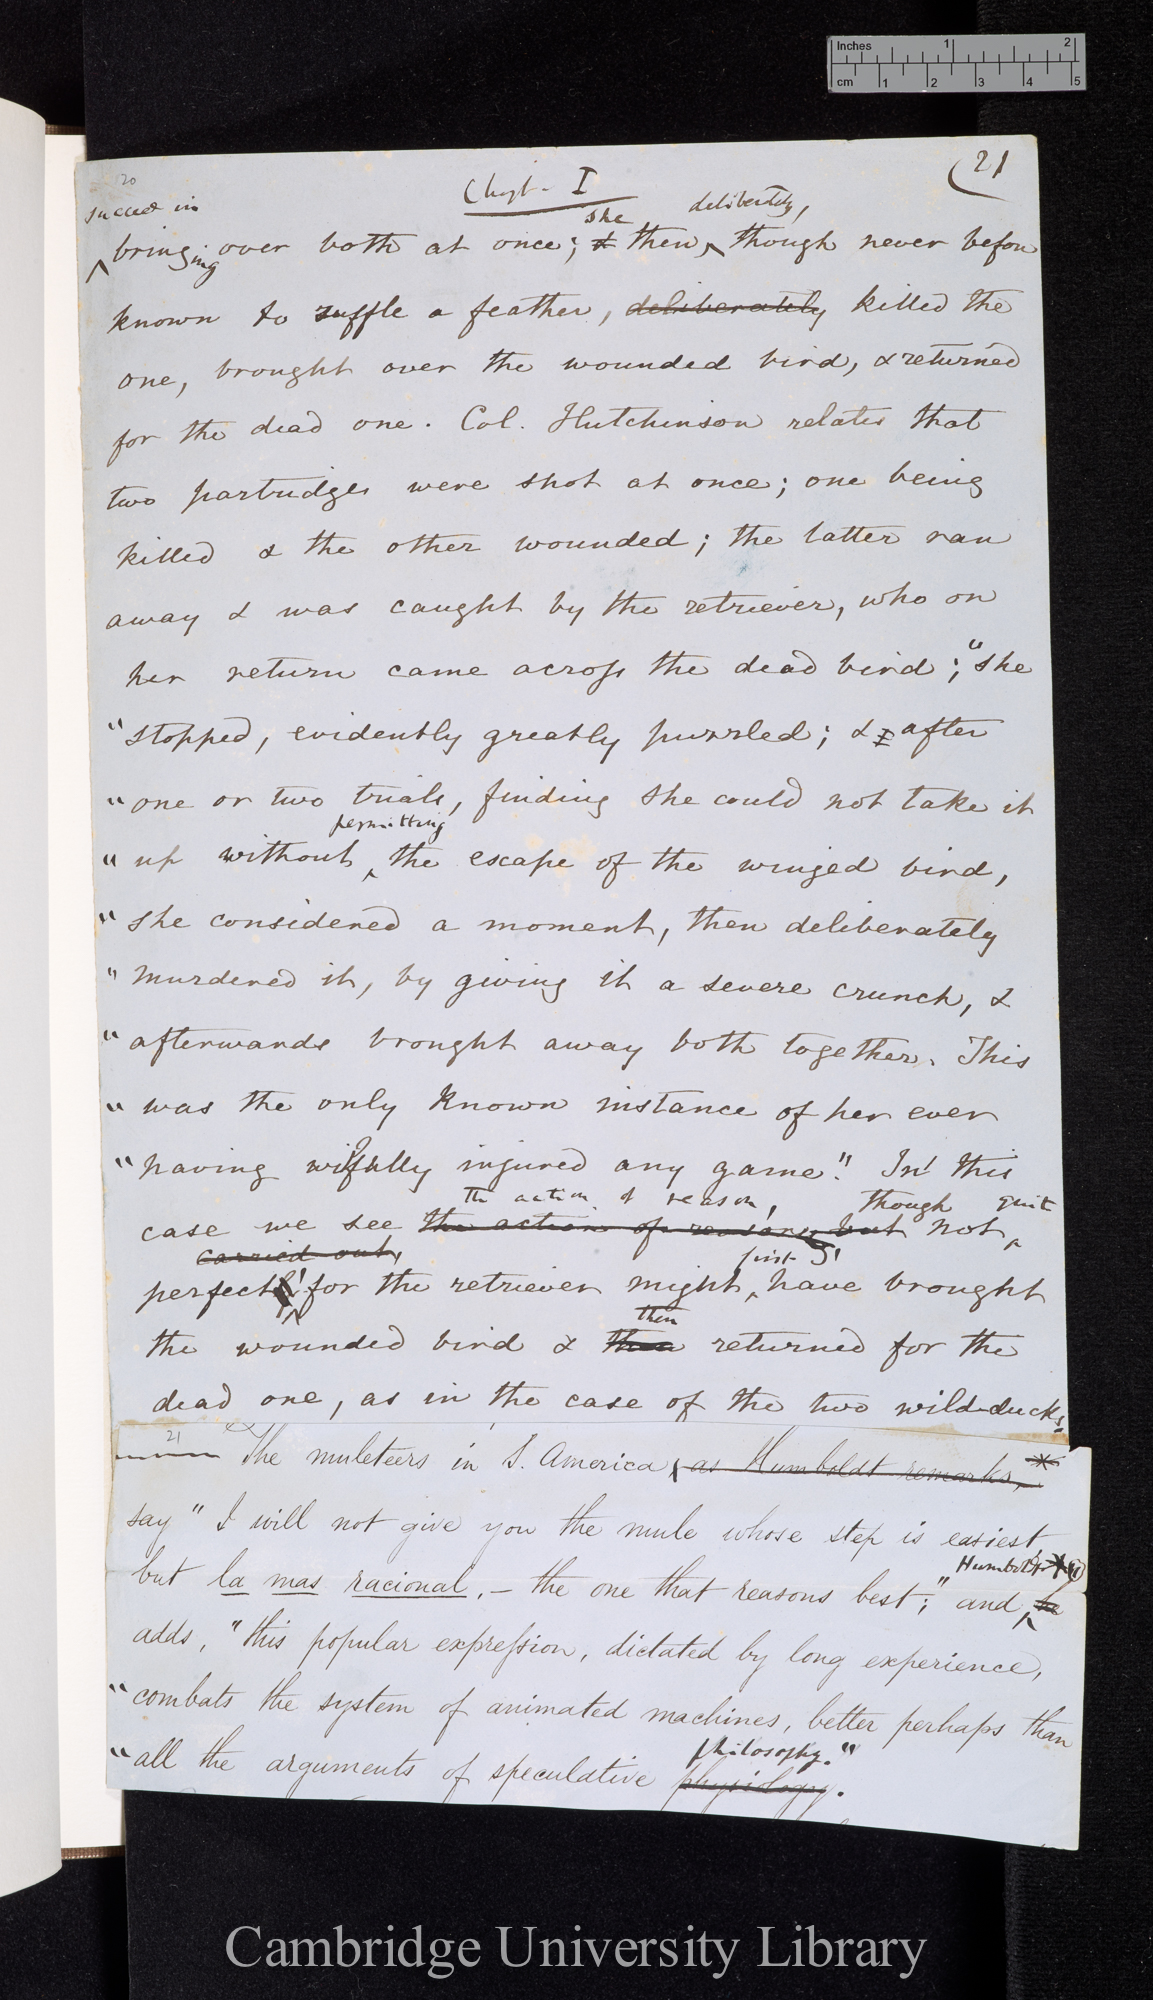 Inches 1 2
cm 1 2 3 4 5
20
Chapt. I
(21
succeed in
she deliberately,
bringing over both at once; it then, though never before
known to ruffle a feather, deliberately killed the
one, brought over the wounded bird, & returned
for the dead one. Col. Hutchinson relates that
two partridges were shot at once; one being
killed & the other wounded; the latter ran
away & was caught by the retriever, who on
her return came across the dead bird; "she
"stopped, evidently greatly puzzled; & after
"one or two trials, finding she could not take it
permitting
"up without the escape of the winged bird,
"she considered a moment, then deliberately
"murdered it, by giving it a severe crunch, &
"afterwards brought away both together. This
"was the only known instance of her ever
"having wilfully injured any game." In this
the action of reason, though quite
case we see the action of reason, but not
carried out,
first
perfect, for the retriever might have brought
then
the wounded bird & then returned for the
dead one, as in the case of the two wild-ducks.
21
The muleteers in S. America, as Humboldt remarks, *
say "I will not give you the mule whose step is easiest,
Humboldt
but la mas racional, – the one that reasons best;" and he
adds, "this popular expression, dictated by long experience,
"combats the system of animated machines, better perhaps than
philosophy."
"all the arguments of speculative physiology.
Cambridge University Library